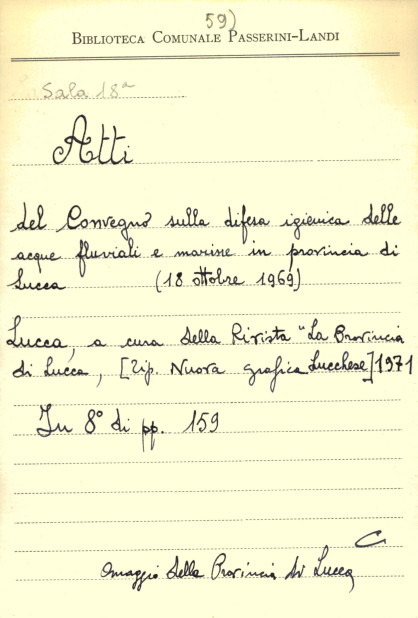 59)
BIBLIOTECA COMUNALE PASSERINI-LANDI
Sala 18ª
Atti
del Convegno sulla difesa igienica delle
acque fluviali e marine in provincia di
Lucca (18 ottobre 1969)
Lucca, a cura della Rivista "La Provincia
di Lucca, [Tip. Nuova grafica Lucchese] 1971
In 8° di pp. 159
C
Omaggio della Provincia di Lucca